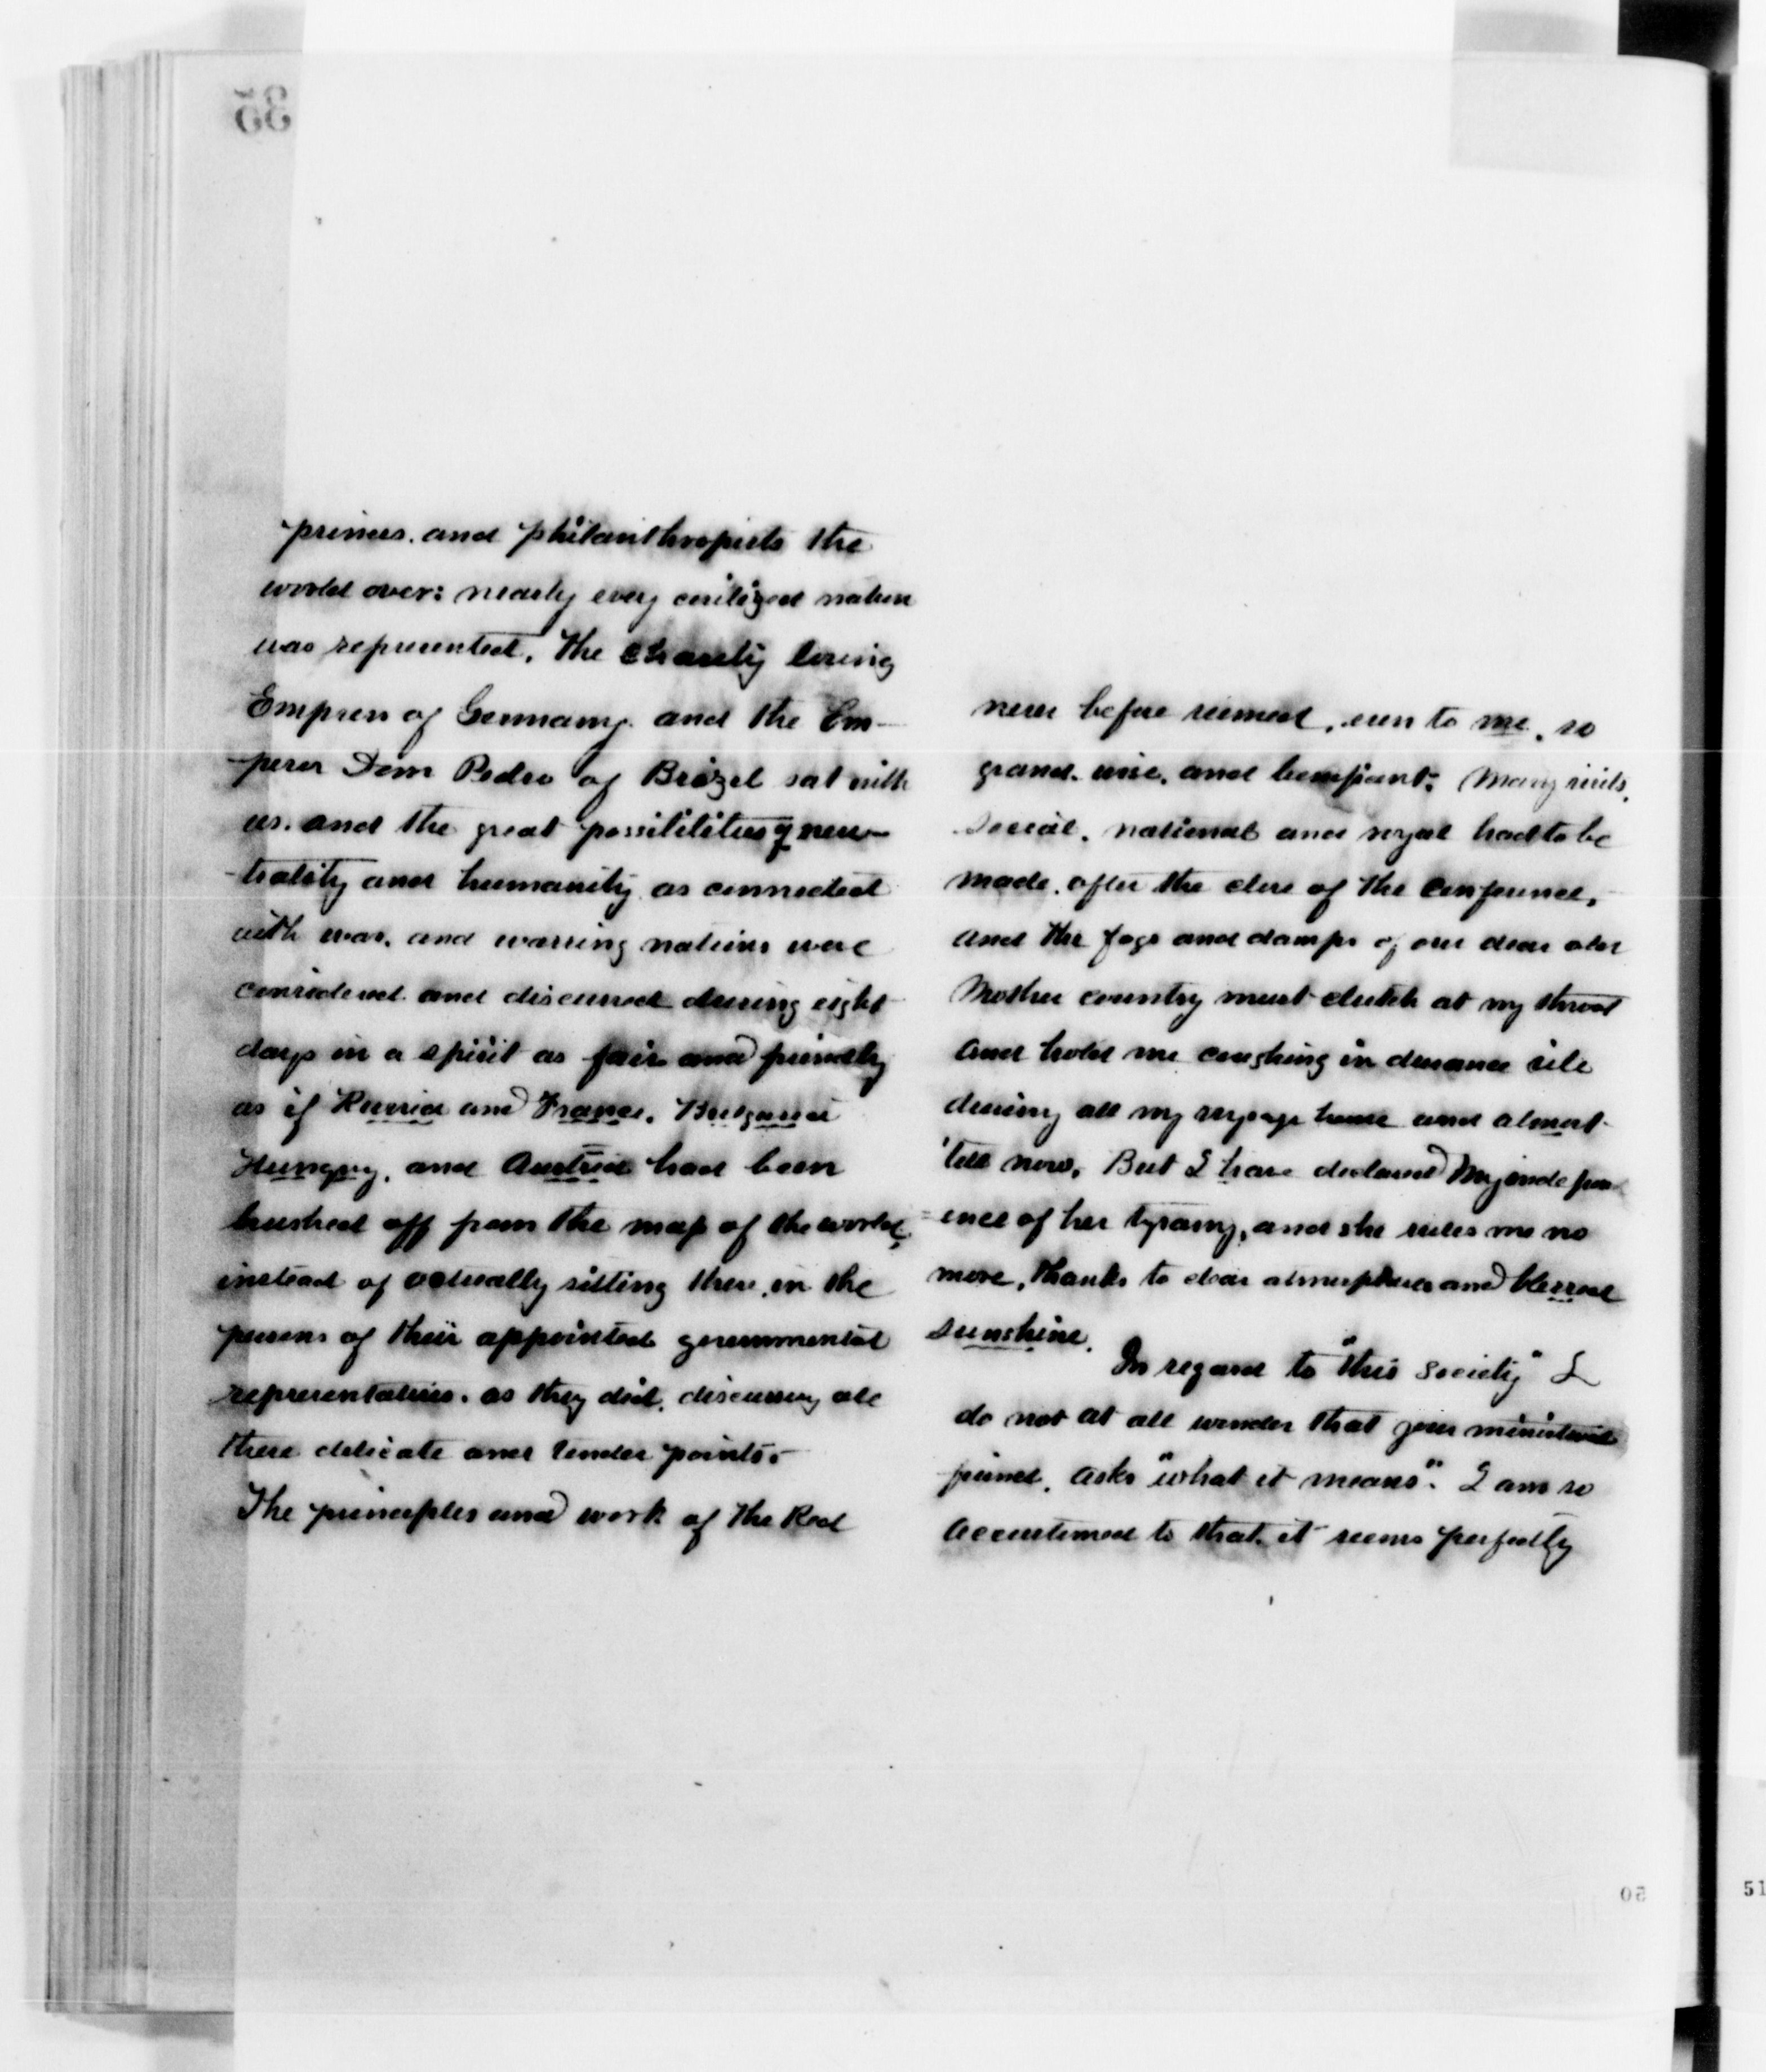 35
princes. and philanthropists the
world over: nearly every civilized nation
was represented. The charity loving
Empress of Germany. and the Em-
peror Dom Pedro of Brazil sat with
us. and the great possibilities of neu-
trality and humanity. as connected
with war. and warring nations were
considered. and discussed during eight
days in a spirit as fair and friendly
as if Russia and France. Bulgaria
Hungry. and Austria had been
brushed off from the map of the world,
instead of actually sitting there. in the
persons of their appointed governmental
representatives. as they did. discussing all
these delicate and tender points.-
The principles and work of the Red
never before seemed. even to me. so
grand. wise. and beneficent. Many visits.
social. national and royal had to be
made. after the close of the conference.
and the fogs and damps of our dear old
Mother country must clutch at my throat
and hold me coughing in durance vile
during all my voyage home and almost
'till now. But I have declared my independ
=ence of her tyrany, and she rules me no
more. thanks to clear atmospheres and blessed
sunshine.
In regard to "this society" I
do not at all wonder that your ministerial
friend. asks "what it means". I am so
accustomed to that. it seems perfectly
50
51